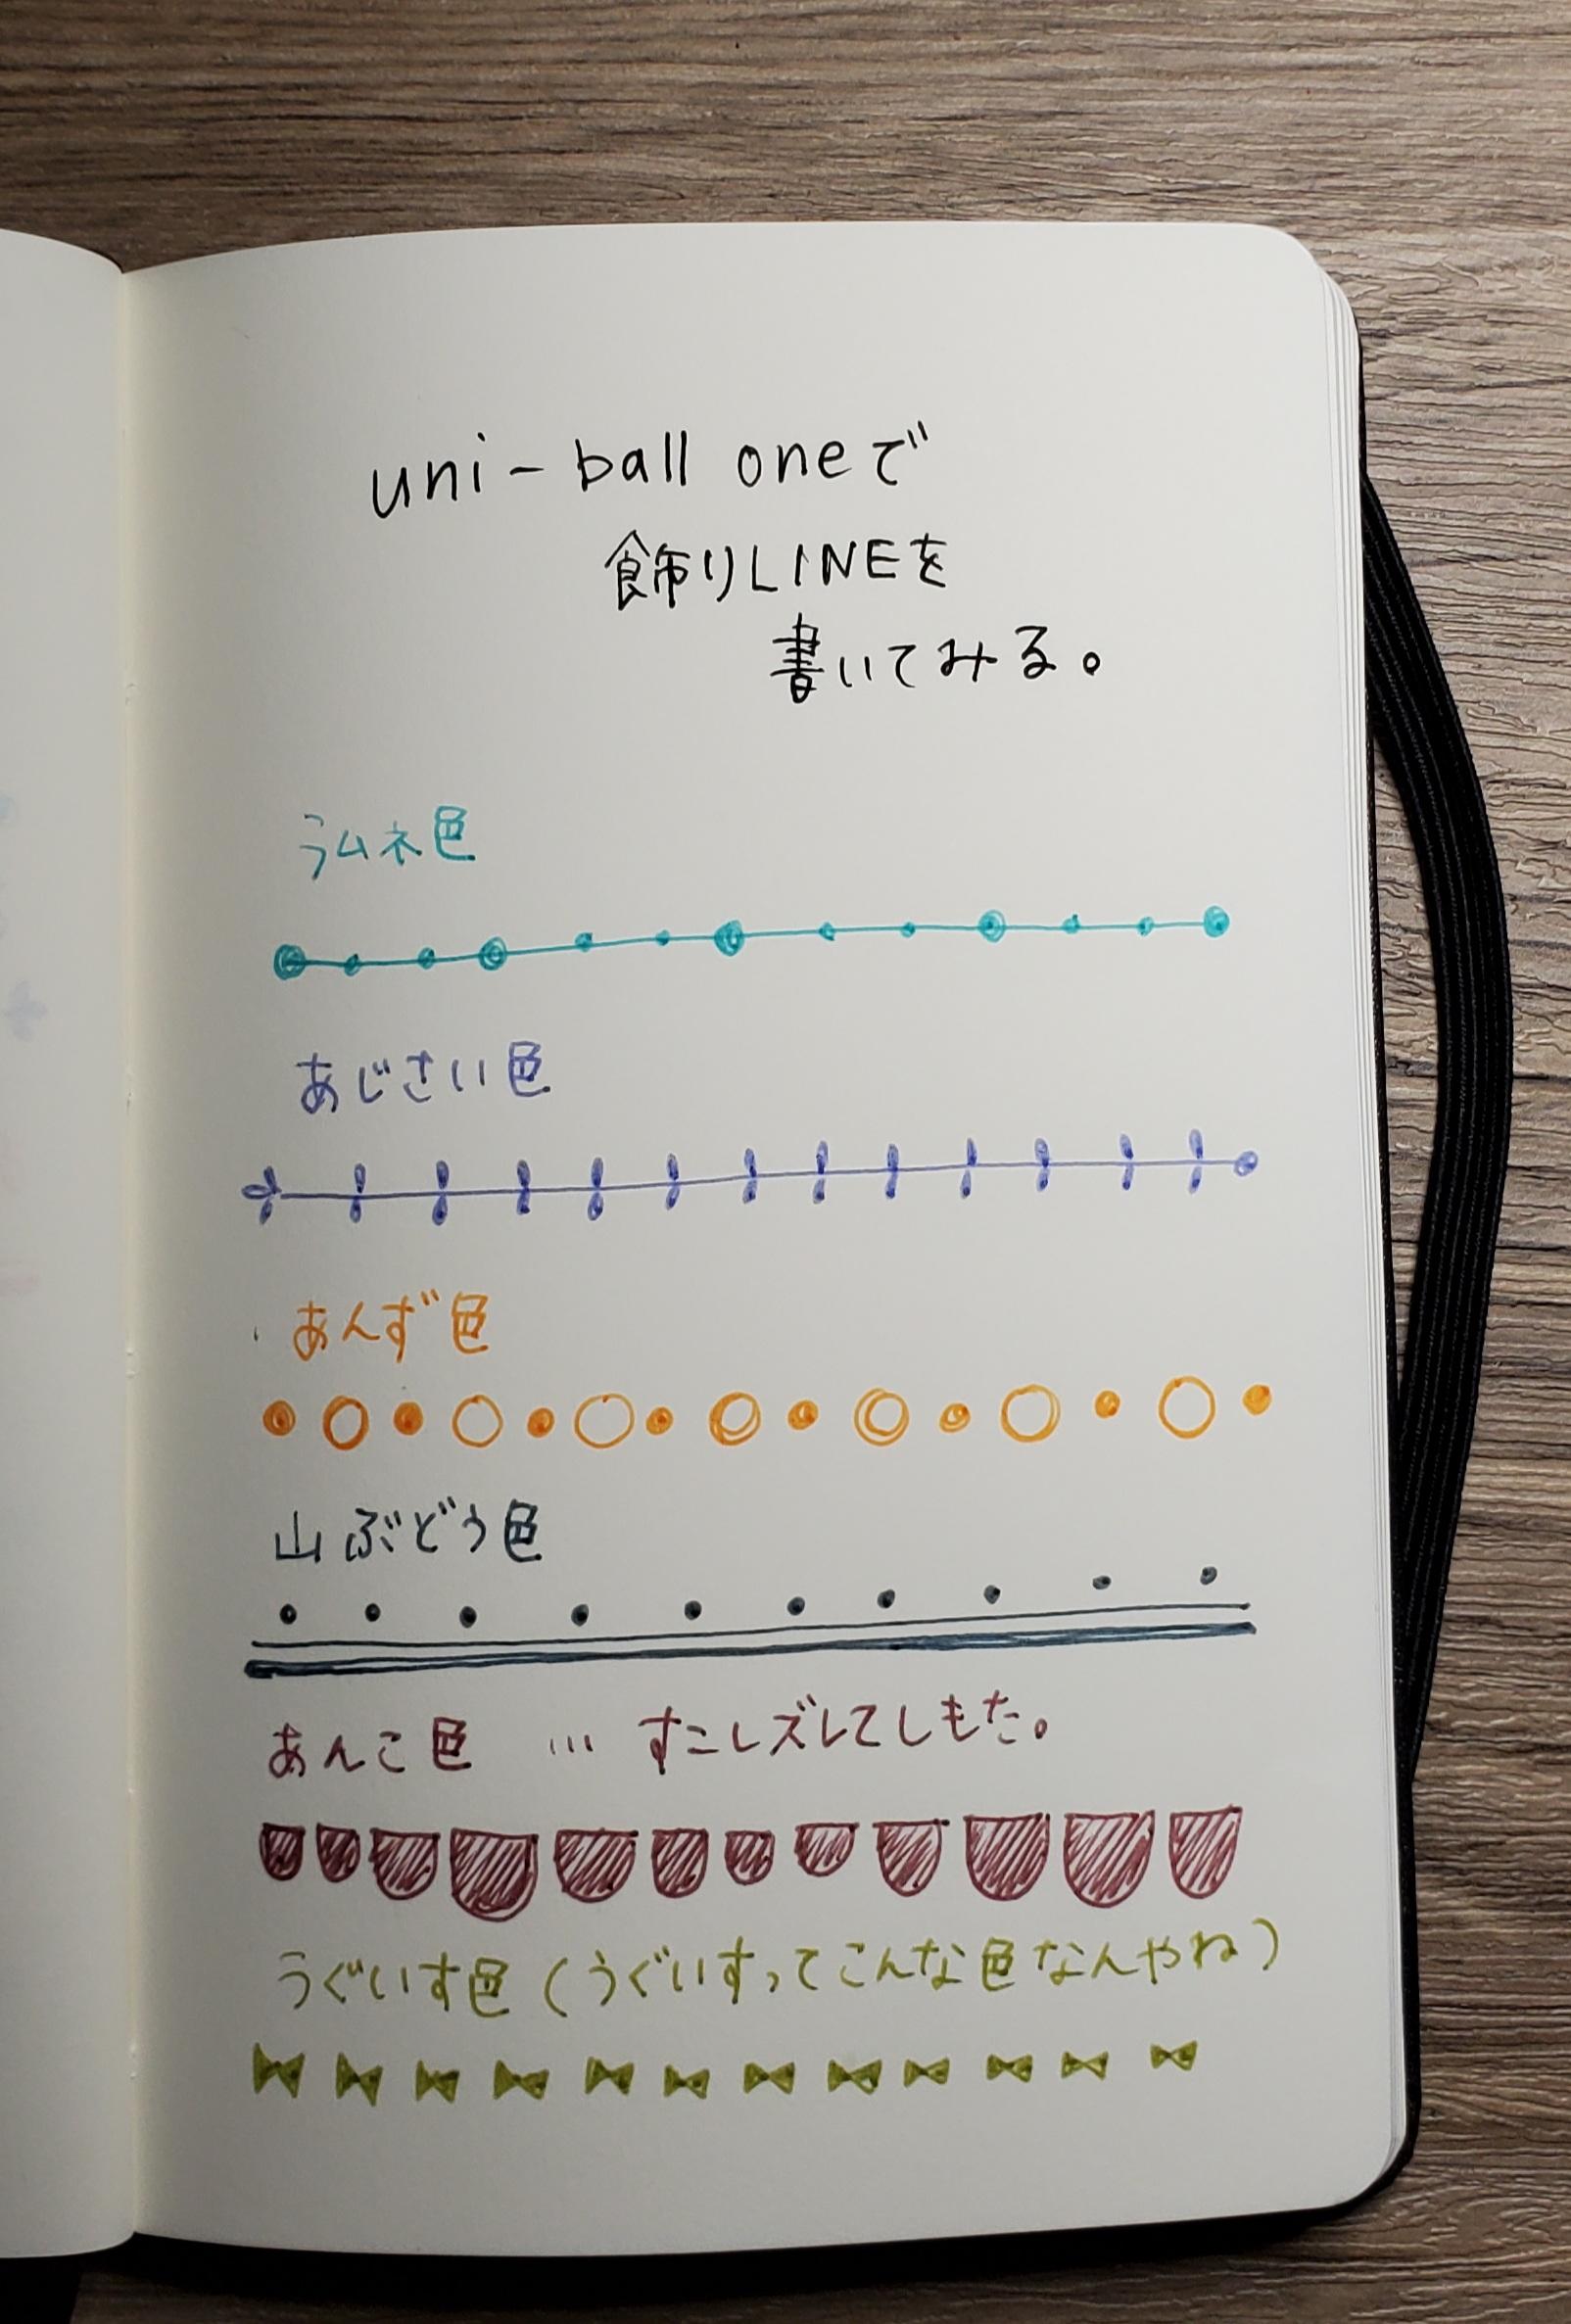 uni-ball oneで
飾りLINEを
書いてみる。
ラムネ色
あじさい色
あんず色
山ぶどう色
あんこ色 … すこしズレてしもた。
うぐいす色(うぐいすってこんな色なんやね)